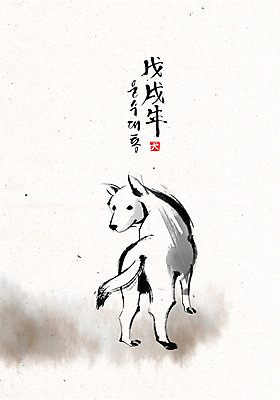 戊戌年
운수대통
犬